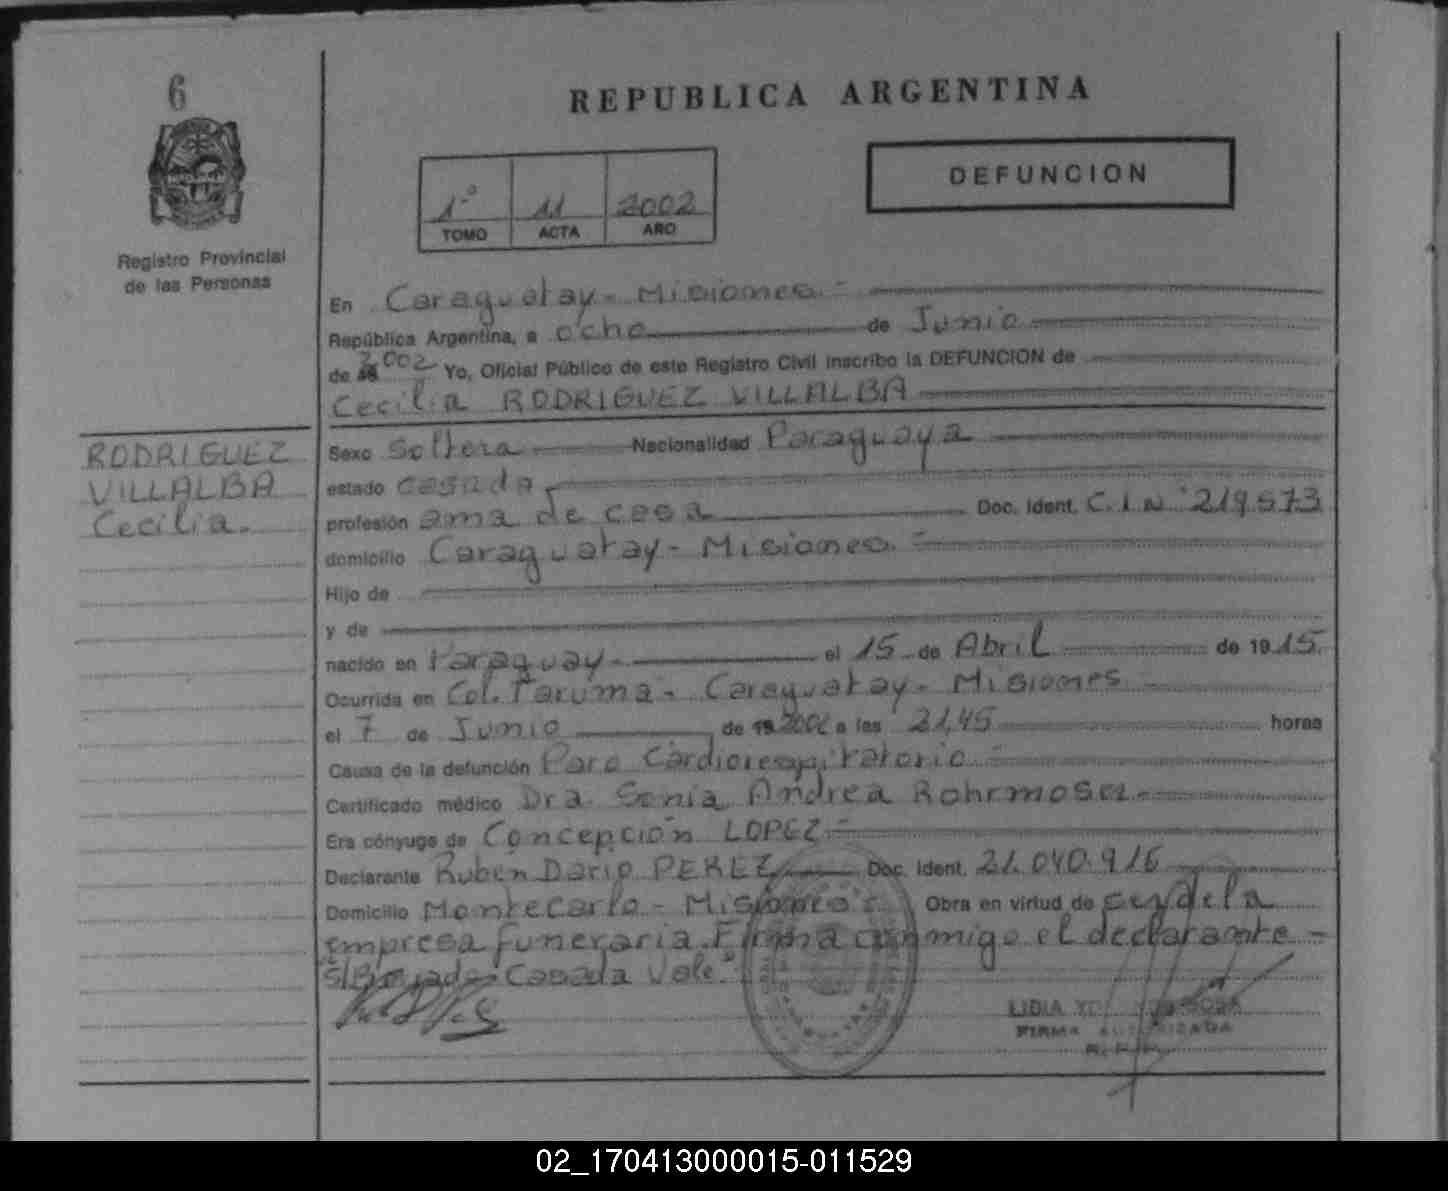 6
REPUBLICA ARGENTINA
DEFUNCION
1º 11 2002
TOMO ACTA AÑO
Registro Provincial
de las Personas
En Caraguatay - Misiones -
República Argentina, a ocho de Junio
de 2002 Yo, Oficial Público de este Registro Civil inscribo la DEFUNCION de
Cecilia RODRIGUEZ VILLALBA
RODRIGUEZ
VILLALBA
Cecilia.
Sexo Soltera Nacionalidad Paraguaya
estado casada
profesión ama de casa Doc. Ident. C.I.Nº 219.573
domicilio Caraguatay - Misiones. -
Hijo de
y de
nacido en Paraguay - el 15 de Abril de 19 15.
Ocurrida en Col. Taruma - Caraguatay - Misiones
el 7 de Junio de 19 2002 a las 21,45 horas
Causa de la defunción Paro Cardiorespiratorio -
Certificado médico Dra. Sonia Andrea Rohrmoser -
Era cónyuge de Concepción LOPEZ -
Declarante Ruben Dario PEREZ Doc. Ident. 21.040.916
Domicilio Montecarlo - Misiones - Obra en virtud de ser de la
empresa funeraria. Firma conmigo el declarante -
"S/Borrado Casada Vale."
LIDIA SOSA
FIRMA AUTORIZADA
R. P. P.
02_170413000015-011529